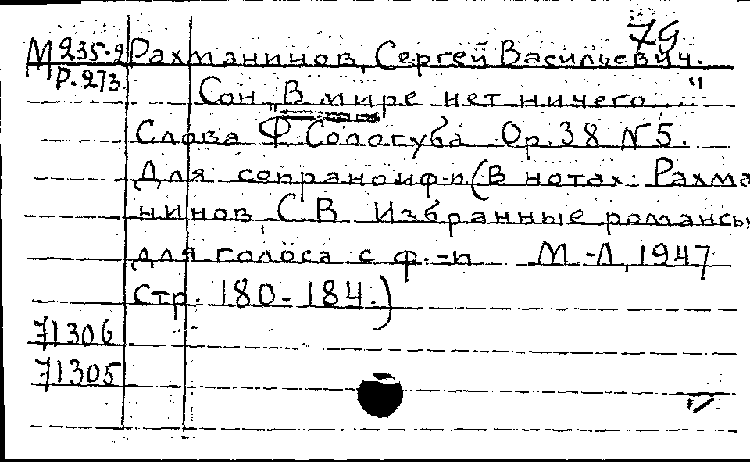 79
М 235.2 Рахманинов, Сергей Васильевич.
Р.273. Сон „В мире нет ничего..."
Слова Ф Сологуба Ор.38 №5.
Для сопрано и ф-п (В нотах: Рахма
нинов, С В Избранные романсы
для голоса с ф.-п М.-Л, 1947
Стр. 180-184.)
71306
71305